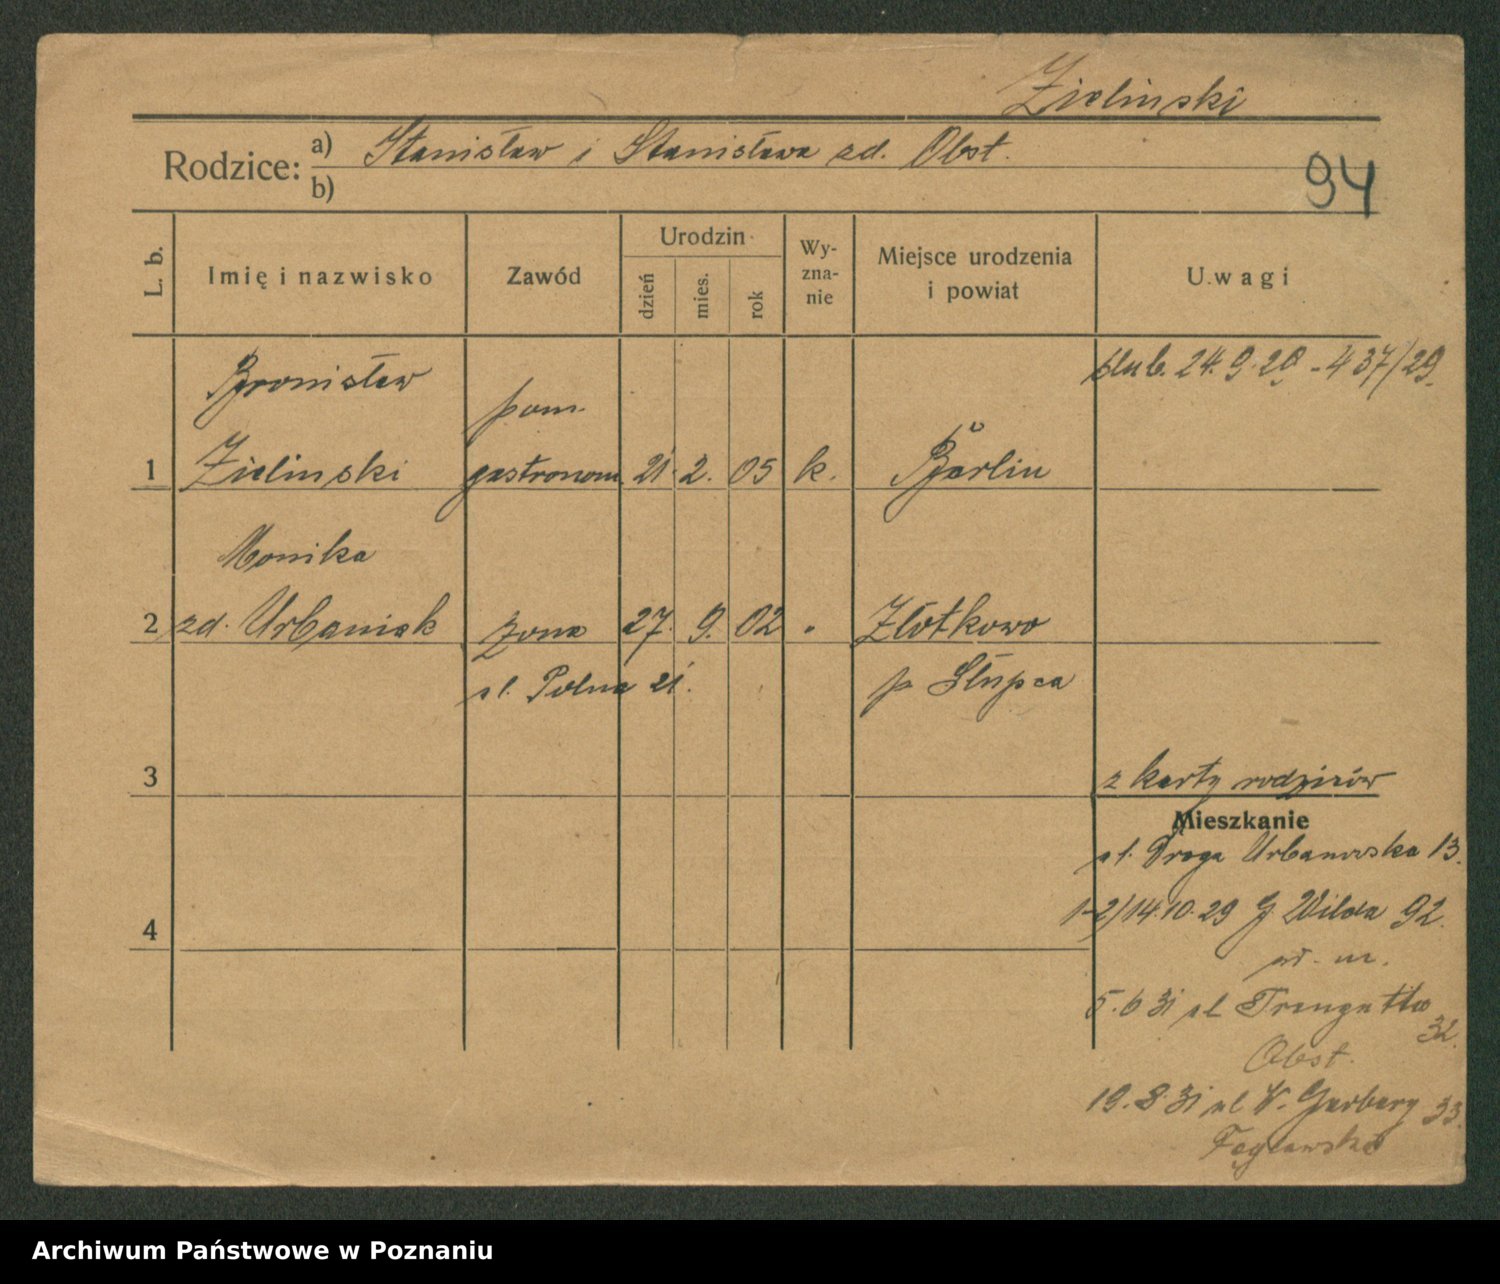 Zieliński
Rodzice: a) Stanisław i Stanisława zd. Obst.
b)
94
L. b.
Imię i nazwisko
Zawód
Urodzin
dzień
mies.
rok
Wy-
zna-
nie
Miejsce urodzenia
i powiat
Uwagi
ślub. 24.9.29 - 437/29.
Bronisław
pom.
1 Zieliński gastronom. 21. 2. 05 k. Berlin
Monika
2 zd. Urbaniak żona 27. 9. 02 " Złotkowo
ul. Polna 21. p Słupca
3
z karty rodziców
Mieszkanie
ul. Droga Urbanowska 13.
4
1-2/14.10.29 G. Wilda 92.
5.6 31 ul
32.
Obst.
19.8.31 ul W. Garbary 33.